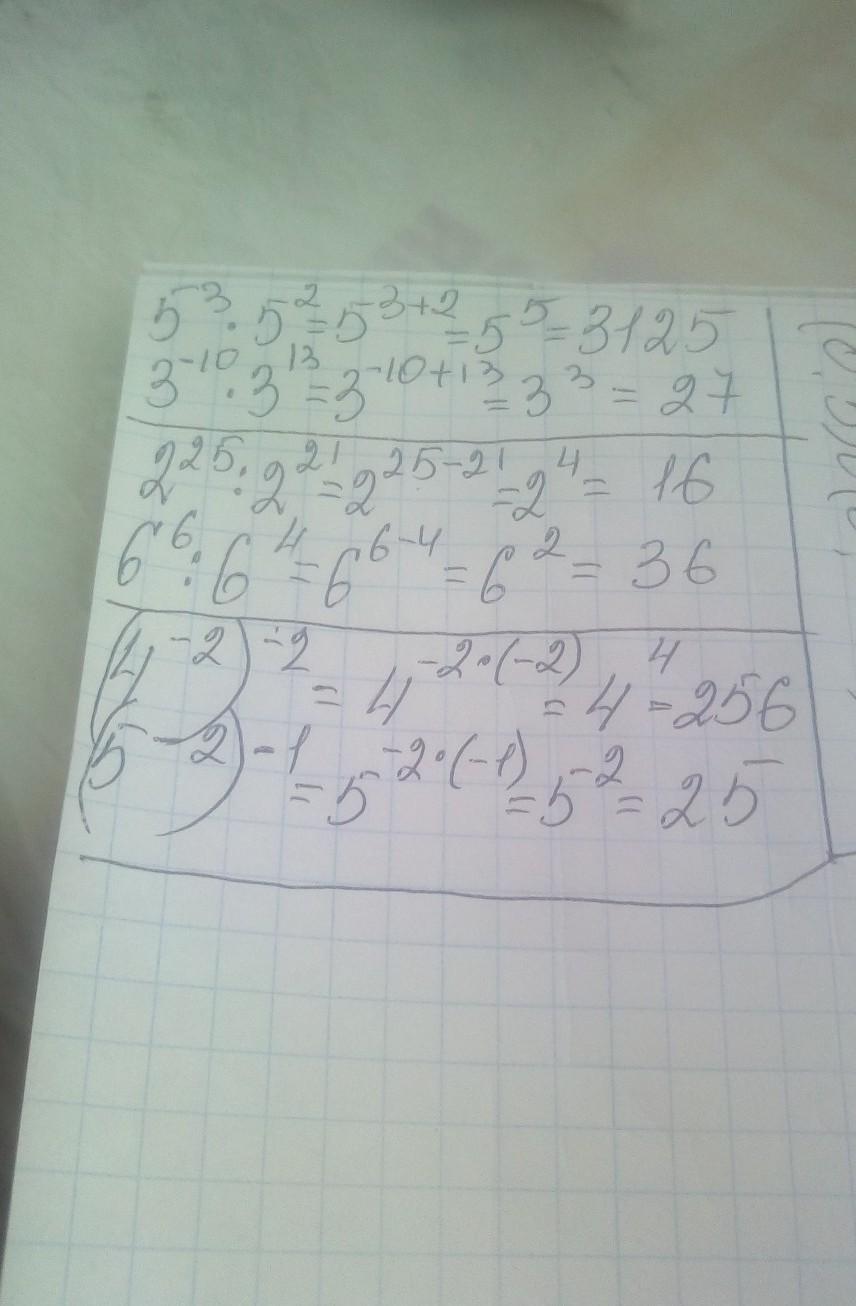 5³ · 5² = 5³⁺² = 5⁵ = 3125
3⁻¹⁰ · 3¹³ = 3⁻¹⁰⁺¹³ = 3³ = 27
2²⁵ : 2²¹ = 2²⁵⁻²¹ = 2⁴ = 16
6⁶ : 6⁴ = 6⁶⁻⁴ = 6² = 36
(4⁻²)⁻² = 4^(-2·(-2)) = 4⁴ = 256
(5⁻²)⁻¹ = 5^(-2·(-1)) = 5⁻² = 25